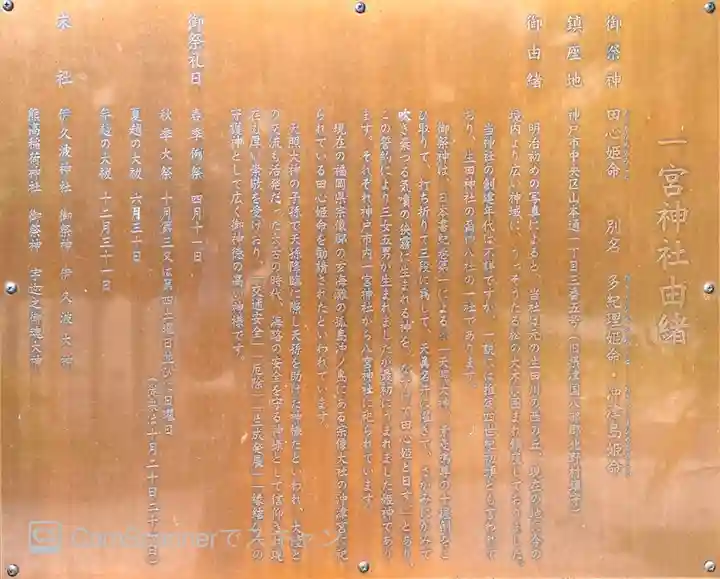 一宮神社由緒
御祭神　田心姫命　別名　多紀理姫命・沖津島姫命
鎮座地　神戸市中央区山本通一丁目三番五号
御由緒　明治初めの写真によると、当社は元の生田川の西の丘、現在の地に今の
境内より広い神域に、うっそうたる松の大木に囲まれ鎮座しておりました。
当神社の創建年代は不詳ですが、一説には推定四世紀初頭とも言われて
おり、生田神社の裔神八社の一社であります。
御祭神は、日本書紀巻第一によると「天照大神、素戔嗚尊の十握剣をこ
ひ取りて、打ち折りて三段に為して、天真名井に濯ぎて、さがみにかみて
吹き棄つる気噴の狭霧に生まれる神を、なづけて田心姫と曰す」とあり、
この誓約により三女五男が生まれましたが最初にうまれました姫神であり
ます。それぞれ神戸市内一宮神社から八宮神社に祀られています。
現在の福岡県宗像郡の玄海灘の孤島沖ノ島にある宗像大社の沖津宮に祀
られている田心姫命を勧請されたといわれています。
天照大神の子孫で天孫降臨に際し天孫を助けた神様だといわれ、大陸と
の交流も活発だった太古の時代、海路の安全を守る神様として信仰され現
在も厚い崇敬を受けており、「交通安全」「厄除」「生成発展」「縁結び」の
守護神として広く御神徳の高い神様です。
御祭礼日　春季例祭　四月十一日
秋季大祭　十月第三又は第四土曜日並びに日曜日
（元来は十月二十日二十一日）
夏越の大祓　六月三十日
年越の大祓　十二月三十一日
末社　伊久波神社　御祭神　伊久波大神
熊高稲荷神社　御祭神　宇迦之御魂大神
CamScannerでスキャン